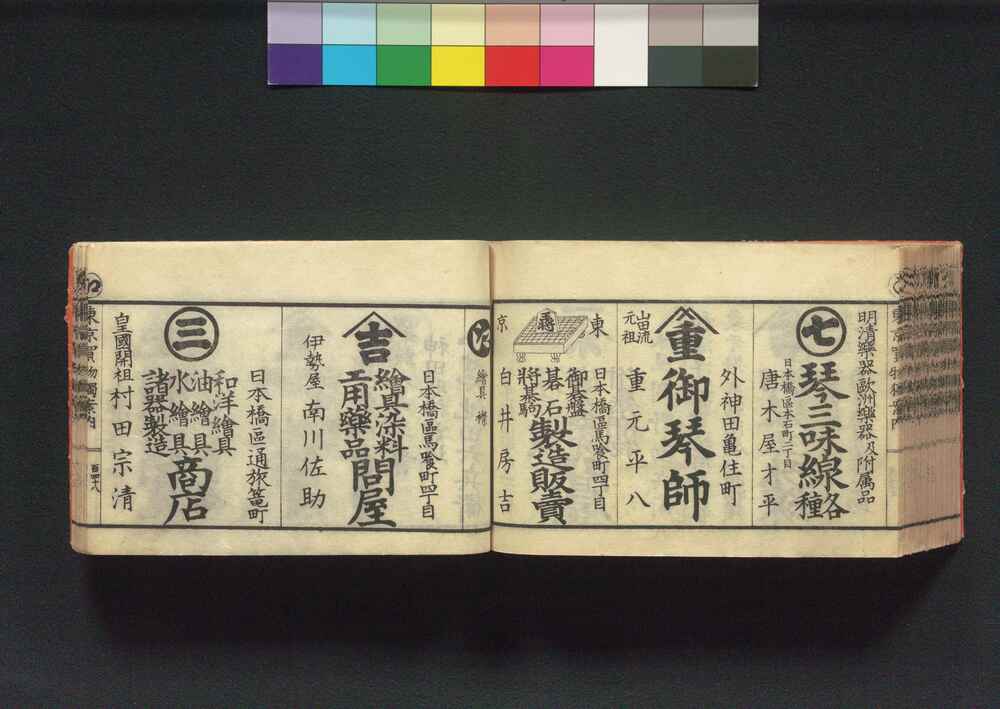 明清樂器歐洲樂器及附属品
七
琴三味線各種
日本橋區本石町二丁目
唐木屋才平
重
御琴師
外神田亀住町
山田流
元祖
重元平八
東
京
蔣
日本橋區馬喰町四丁目
御碁盤
碁石
將棊駒
製造販賣
白井房吉
繪具
吉
日本橋區馬喰町四丁目
繪具染料
工用藥品
問屋
伊勢屋
南川佐助
三
日本橋區通旅篭町
和洋繪具
油繪具
水繪具
諸器製造
商店
皇國開祖村田宗清
東京買物獨案内
百四十八